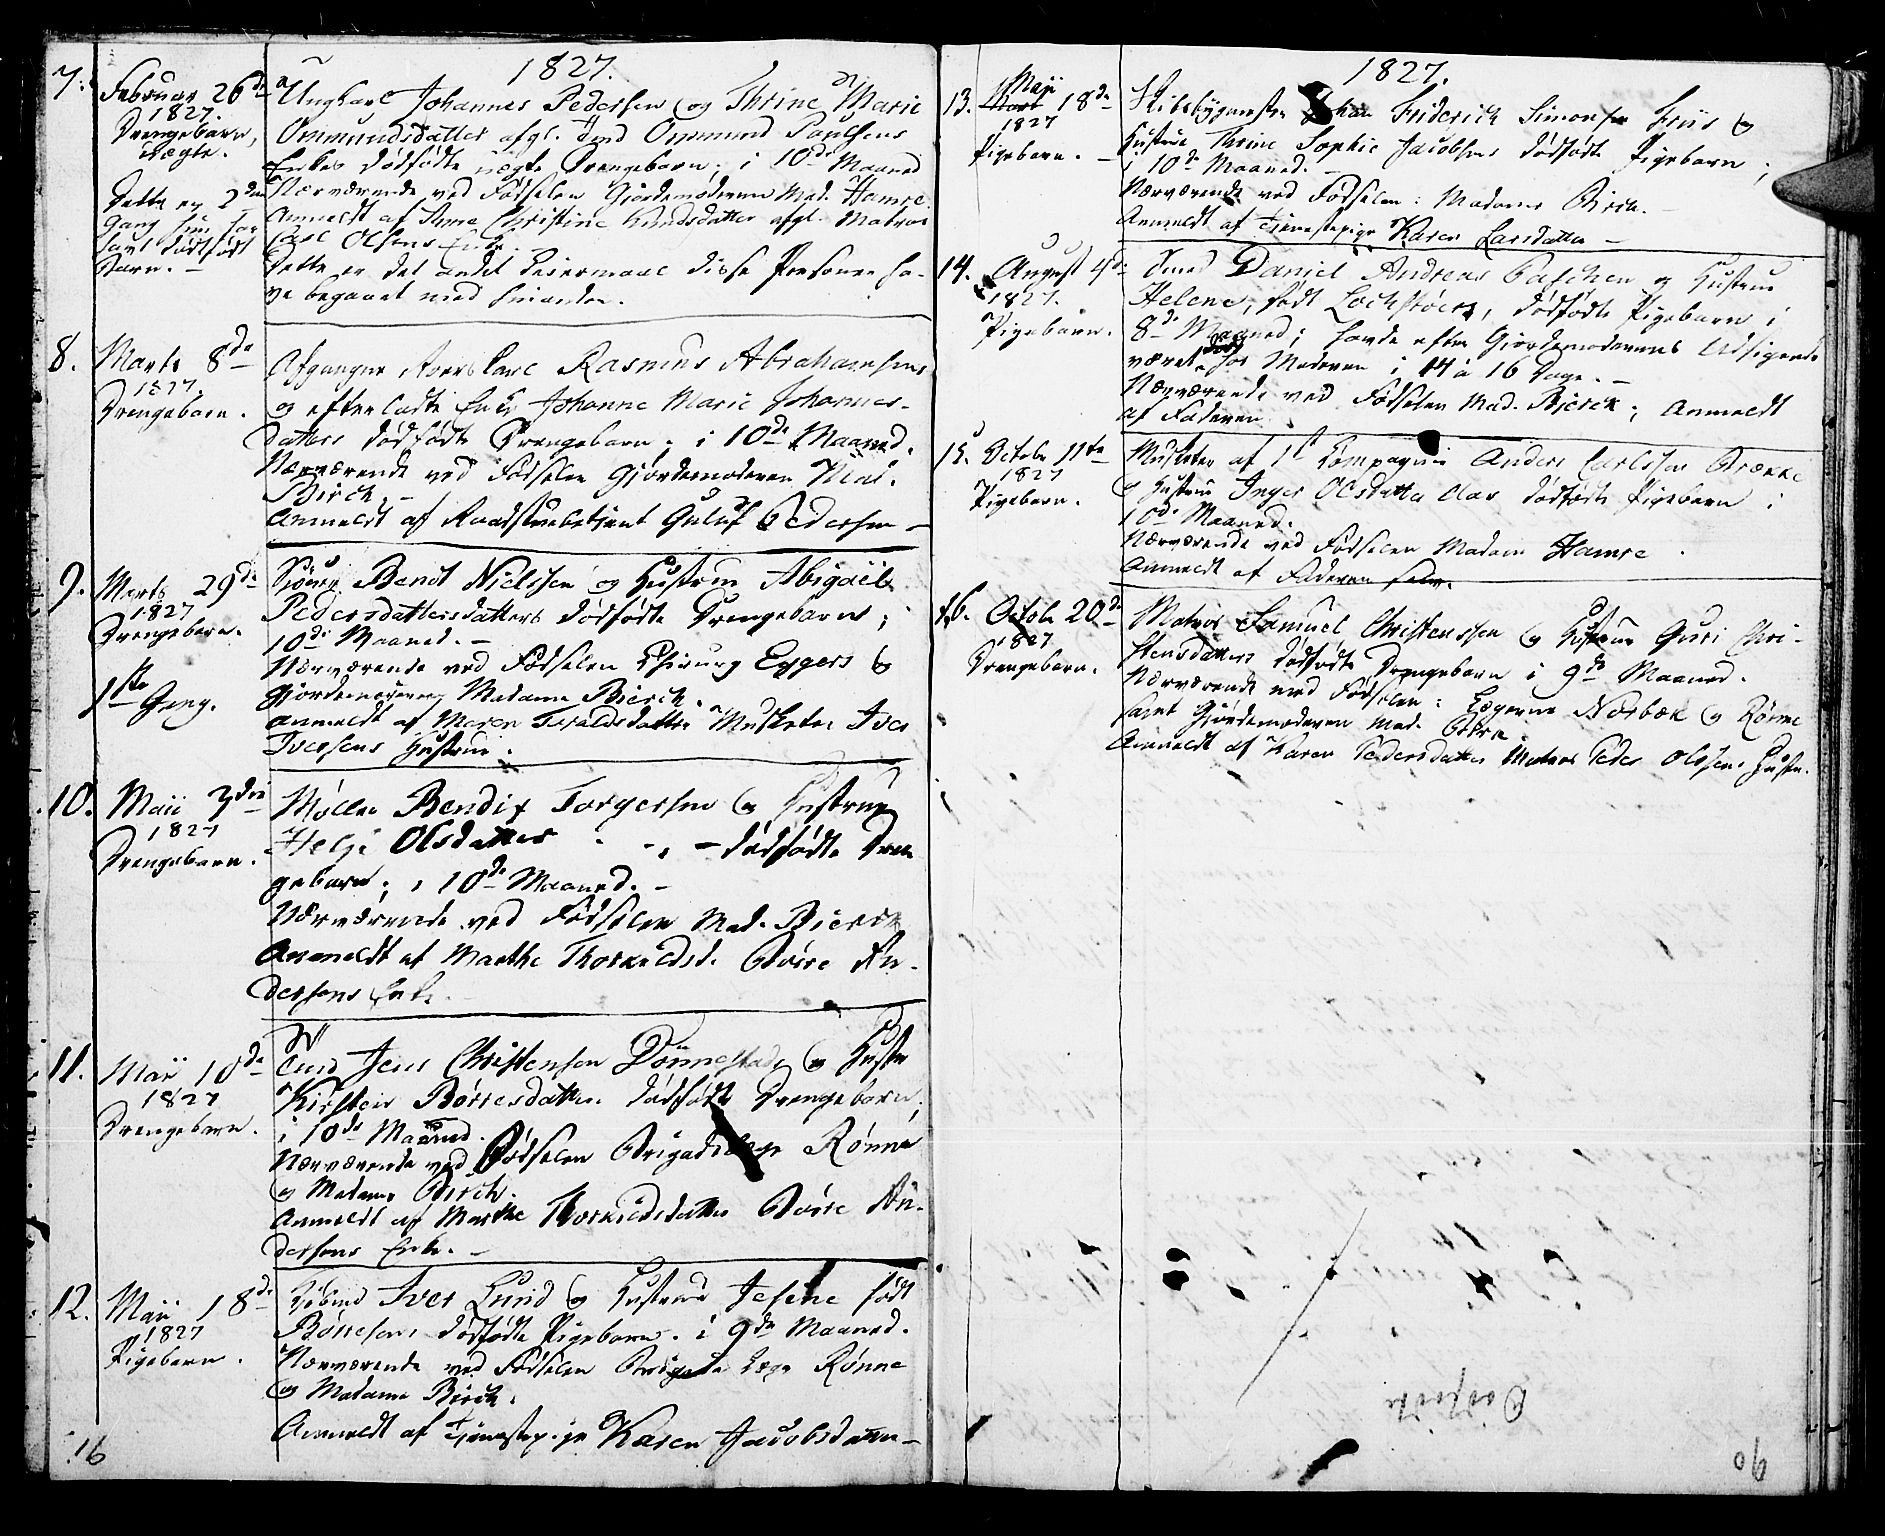 1827.
7. Februar 26de
1827.
Drengebarn,
uægte.
Dette er 2den
Gang hun har
havt dødfødt
Barn. –
Ungkarl Johannes Pedersen og Thrine Marie
Ommundsdatter afgl. Ommund Poulsens
Enkes dødfødte uægte Drengebarn; i 10de Maaned
Nærværende ved Fødselen Gjordemoderen Mad. Hamre.
Anmeldt af Christine Knudsdatter afgl. Matros
Carl Olsens Enke.
Dette er det andet Leiermaal disse Personer ha-
ve begaaet med hinanden.
8. Marts 8de
1827.
Drengebarn.
Afgangne Rasmus Abrahamsens
og efterladte Enke Johanne Marie Johannes-
datters dødfødte Drengebarn; i 10de Maaned.
Nærværende ved Fødselen Gjordemoderen Mad.
Birch. –
Anmeldt af Raadstuebetjent Guluf Pedersen –
9. Marts 29de
1827
Drengebarn.
1ste Gang.
Bendt Nielssen og Hustrue Abigael
Pedersdattersdatters dødfødte Drengebarn;
10de Maaned. –
Nærværende ved Fødselen Chirurg Eggers og
Gjordemoderen Madame Bierch.
Anmeldt af Maren Musketer Iver
Iversens Hustrue.
10. Maii 3die
1827
Drengebarn.
Møller Bendix Torgersen og Hustrue
Helje Olsdatter dødfødte Dren
gebarn; i 10de Maaned. –
Nærværende ved Fødselen Mad. Bierck
Anmeldt af Marthe Thorkildsd. Børre An-
dersens Enke. –
11. Maii 10de
1827
Drengebarn.
Jens Christensen Dønnestad og Hustr
Kirsten Børresdatters dødfødte Drengebarn;
i 10de Maaned.
Nærværende ved Fødselen Brigadelæge Rønne
og Madame Birch.
Anmeldt af Marthe Thorkildsdatter Børre An-
dersens Enke. –
12. Maii 18de
1827
Pigebarn.
Iver Lund og Hustrue Jesine født
Børresens dødfødte Pigebarn. i 9de Maaned.
Nærværende ved Fødselen Brigade Læge Rønne
og Madame Birch.
Anmeldt af Tjenestepige Karen Jacobsdatter –
16
1827.
13. Maji
Marts 18de
1827
Pigebarn. –
Friderich Simonsen Friis og
Hustrue Thrine Sophie Jacobsens dødfødte Pigebarn;
i 10de Maaned. –
Nærværende ved Fødselen: Madame Birch. –
Anmeldt af Tjenestepige Karen Larsdatter –
14. August 4de
1827.
Pigebarn.
Smed Daniel Andreas Paschen og Hustrue
Helene, født Lochstøers, dødfødte Pigebarn i
8de Maaned; havde efter Gjordemoderens Udsigende
været død hos Moderen i 14 à 16 Dage. –
Nærværende ved Fødselen Mad. Bierck; Anmeldt
af Faderen.
15. Octobr 11te
1827
Pigebarn.
Musketer af 1st Compagnie Anders Carlssen Brække
og Hustrue Inger Olsdatter dødfødte Pigebarn i
10de Maaned.
Nærværende ved Fødselen Madam Hamre.
Anmeldt af Faderen selv.
16. Octobr 20de
1827
Drengebarn.
Matros Samuel Christenssen og Hustrue Guri Chri-
stensdatters dødfødte Drengebarn i 9de Maaned.
Nærværende ved Fødselen: Lægerne Norbæk og Rønne
samt Gjordemoderen Mad.
Anmeldt af Karen Pedersdatter Matros Peder Olssens Hustr.